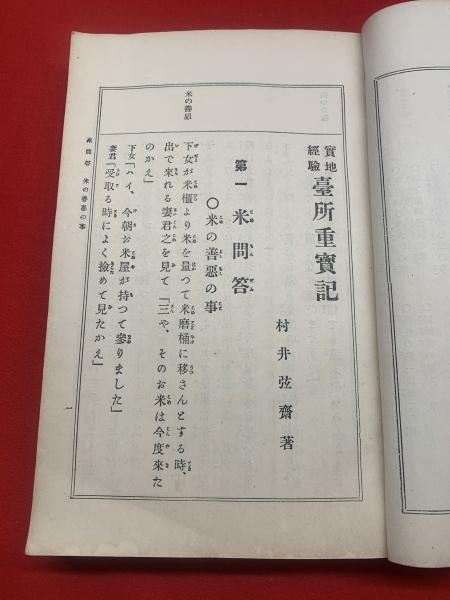 實地經驗 臺所重寶記
村井弦齋著
第一 米問答
○米の善惡の事
下女が米櫃より米を量つて米磨桶に移さんとする時、
出で來れる妻君之を見て「三や、そのお米は今度來た
のかえ」
下女「ハイ、今朝お米屋が持つて參りました」
妻君「受取る時によく撿めて見たかえ」
米の善惡
米問答 米の善惡の事
一